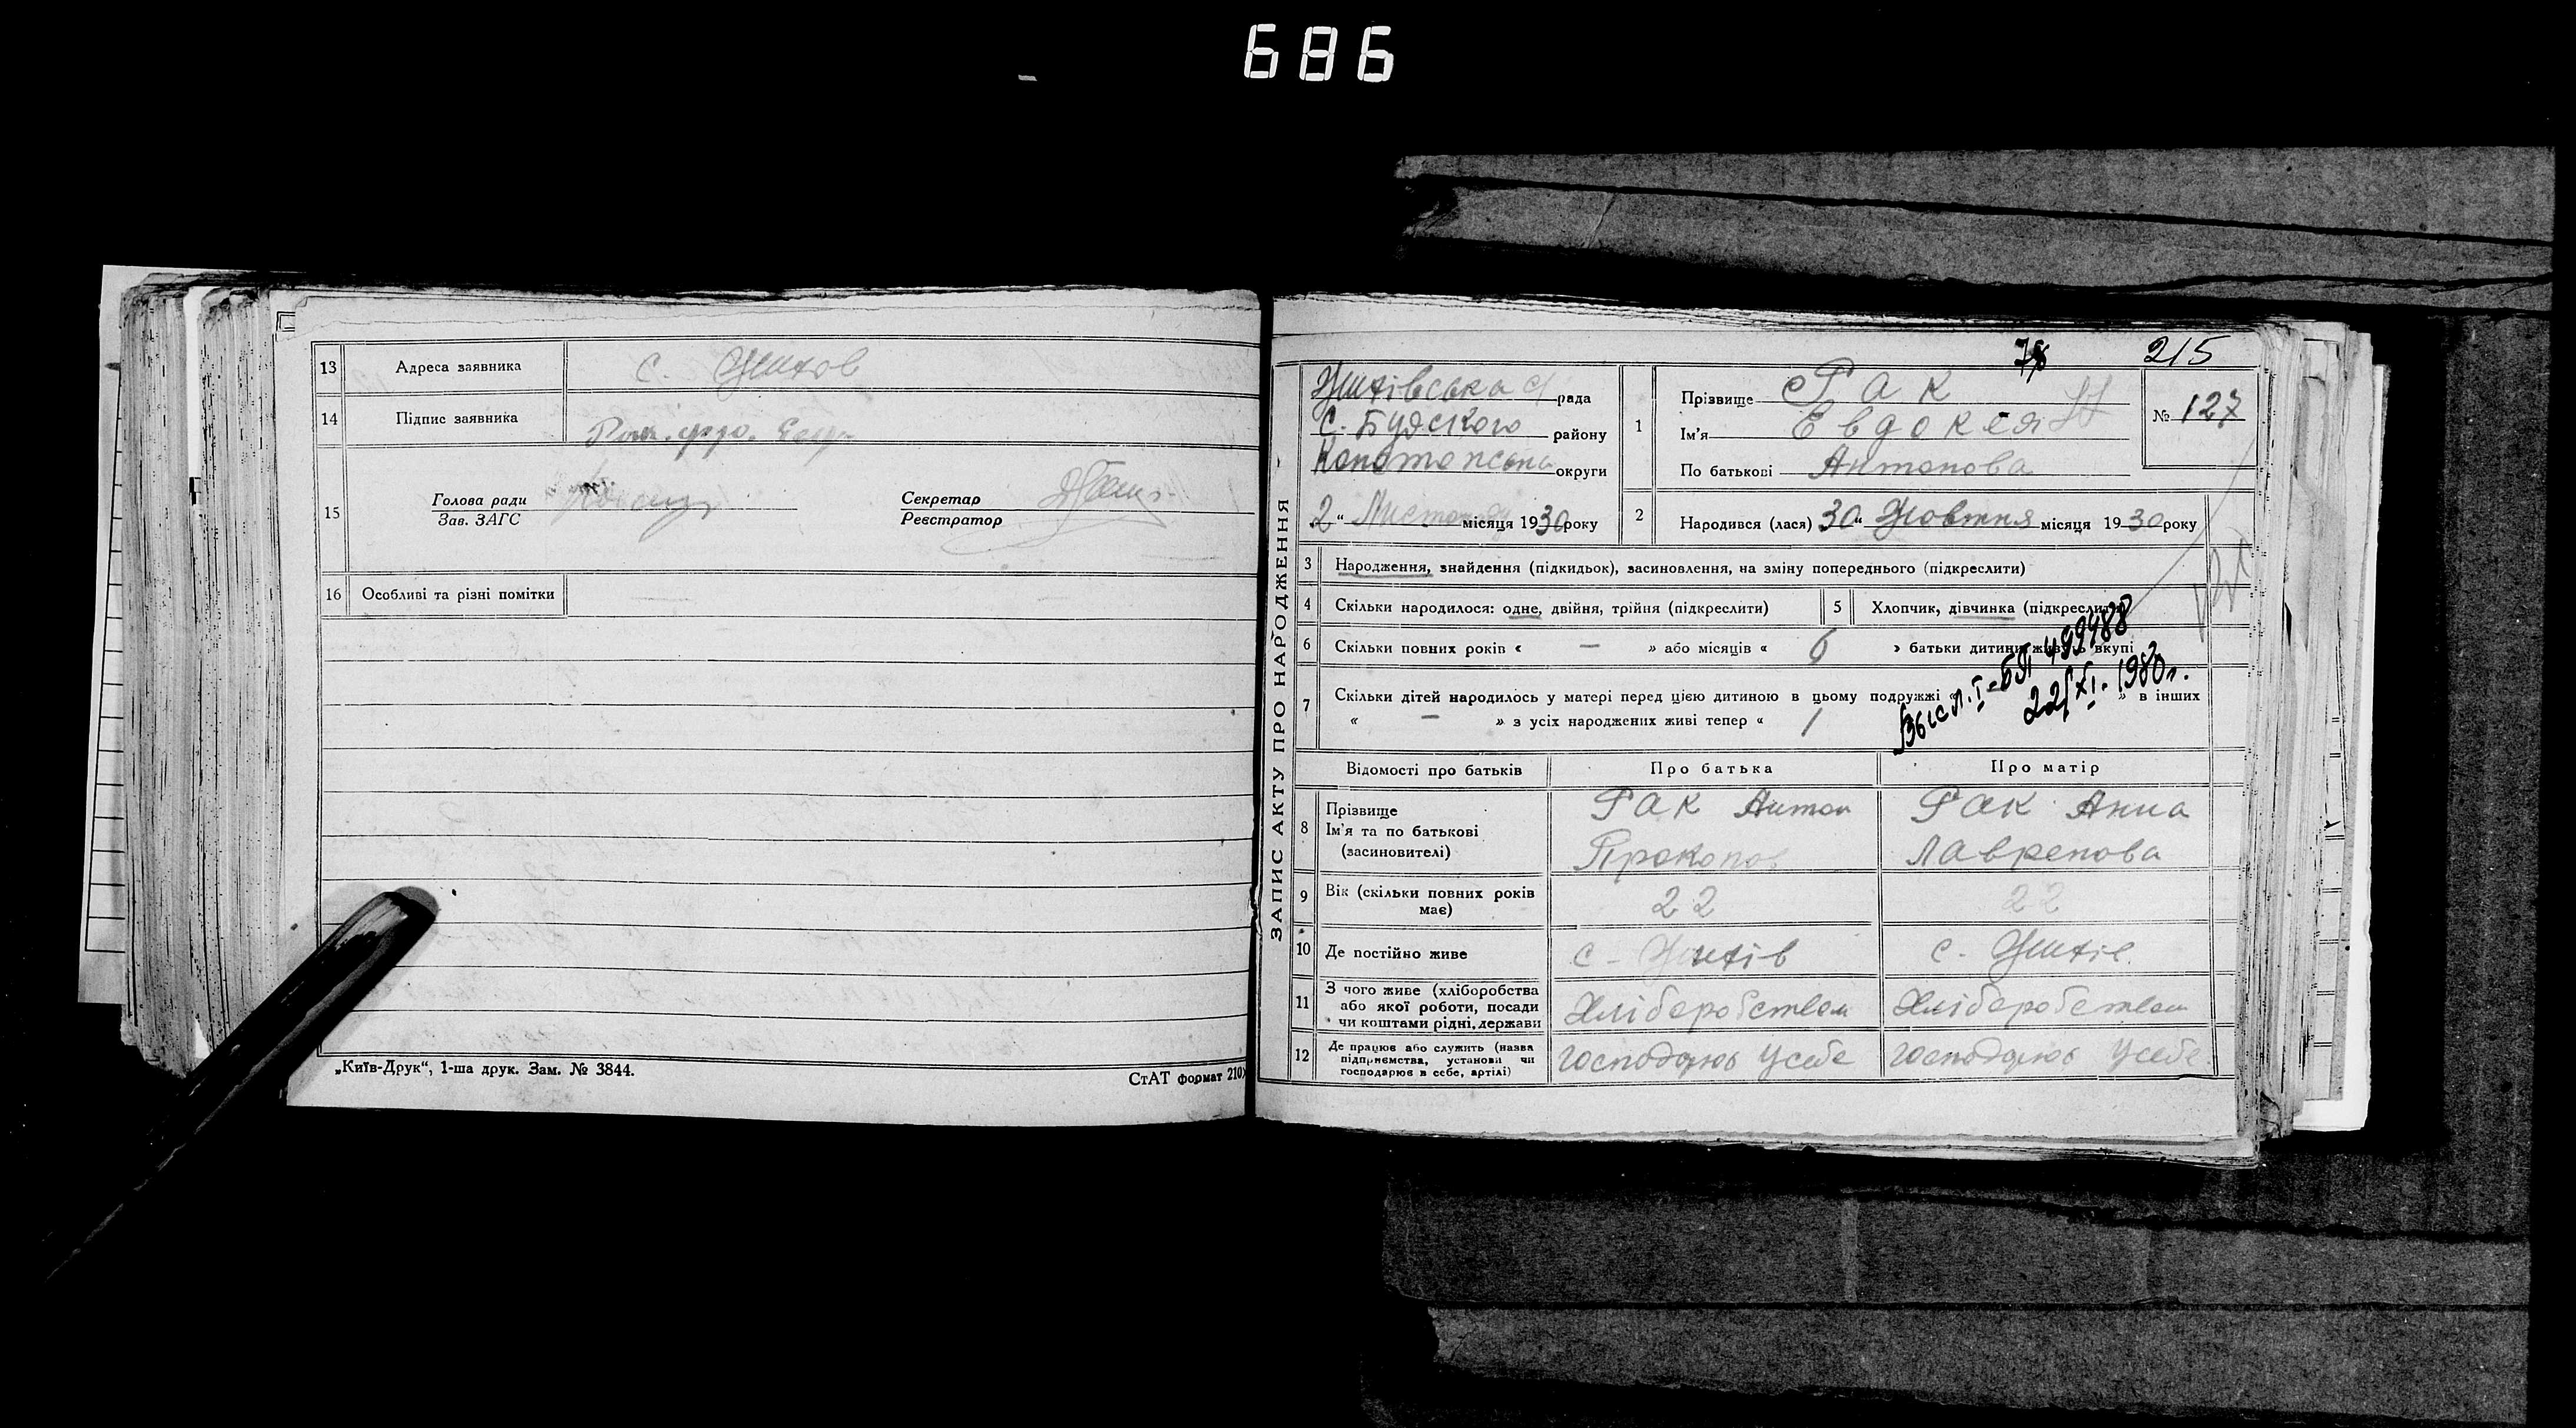 686
13 Адреса заявника с. Жихов
14 Підпис заявника
15 Голова ради
Зав. ЗАГС
Секретар
Реєстратор
16 Особливі та різні помітки
„Київ-Друк“, 1-ша друк. Зам. № 3844.
СтАТ формат 210
215
ЗАПИС АКТУ ПРО НАРОДЖЕННЯ
Жихівська с/рада
С.-Будского району
Конотопська округи
2 “ Листопаду місяця 1930 року
1 Прізвище Рак
Ім'я Евдокея
По батькові Антонова
№ 127
2 Народився (лася) 30 “ Жовтня місяця 1930 року
3 Народження, знайдення (підкидьок), засиновлення, на зміну попереднього (підкреслити)
4 Скільки народилося: одне, двійня, трійня (підкреслити)
5 Хлопчик, дівчинка (підкреслити)
6 Скільки повних років « — » або місяців « 6 » батьки дитини живуть вкупі
7 Скільки дітей народилось у матері перед цією дитиною в цьому подружжі « » в інших
« — » з усіх народжених живі тепер « 1
І-БП 499488
22/XI. 1980г.
Відомості про батьків Про батька Про матір
8 Прізвище
Ім'я та по батькові
(засиновителі)
Рак Антон
Прокопов
Рак Анна
Лавренова
9 Вік (скільки повних років
має)
22 22
10 Де постійно живе с. Жихів с. Жихів
11 З чого живе (хліборобства
або якої роботи, посади
чи коштами рідні, держави
Хліборобством Хліборобством
12 Де працює або служить (назва
підприємства, установи чи
господарює в себе, артілі)
господарює у себе господарює у себе